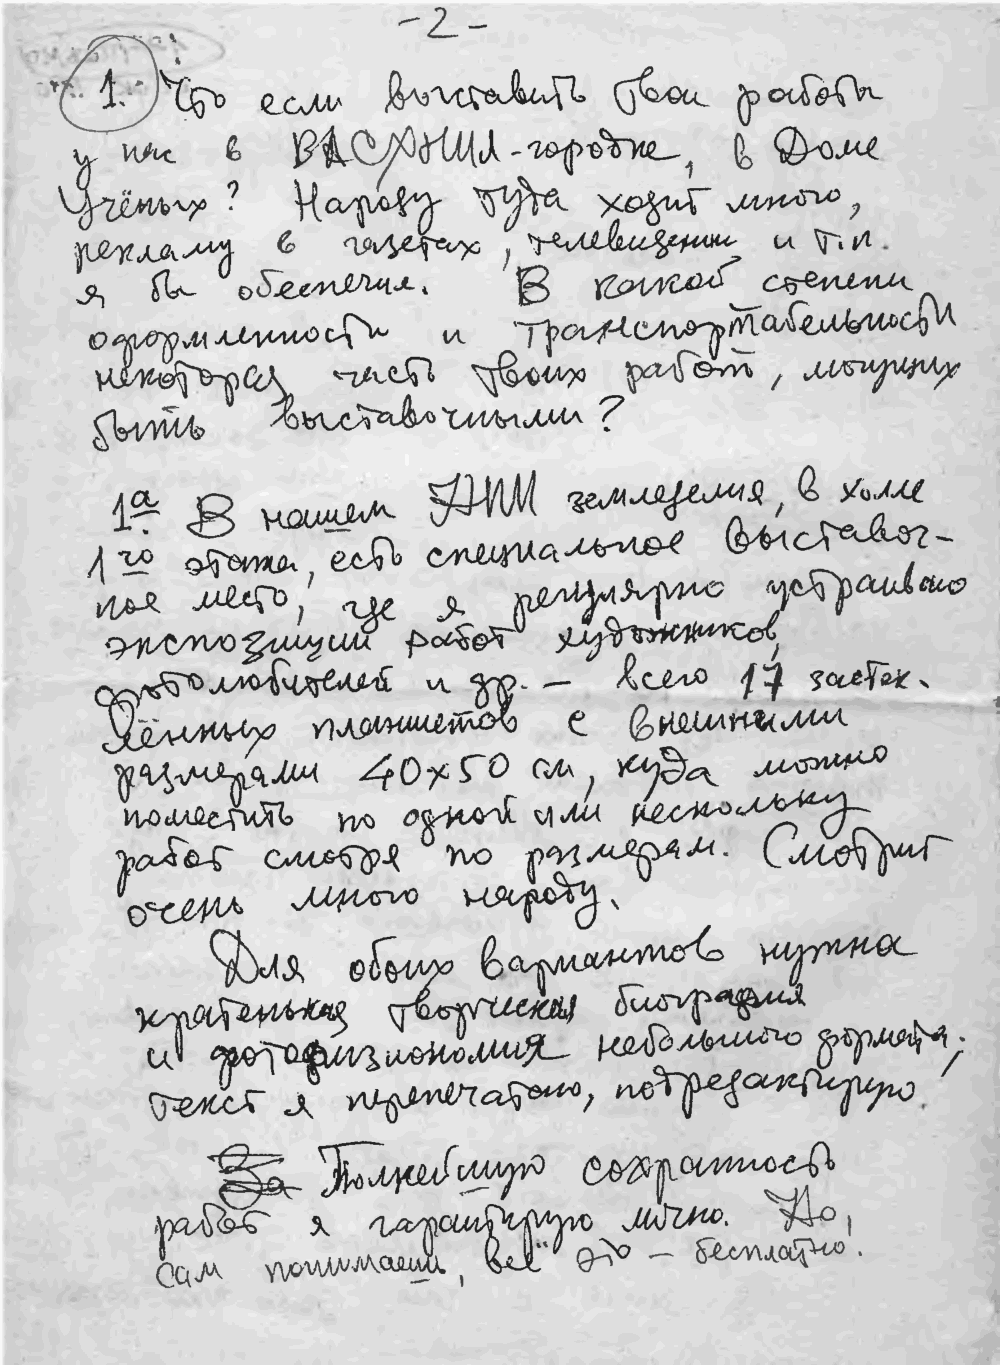 -2-
1. Что если выставить твои работы
у нас в ВАСХНИЛ-городке, в Доме
Учёных? Народу туда ходит много,
рекламу в газетах, телевидении и т.п.
я бы обеспечил. В какой степени
оформленности и транспортабельности
некоторая часть твоих работ, могущих
быть выставочными?
1а. В нашем НИИ земледелия, в холле
1го этажа, есть специальное выставоч-
ное место, где я регулярно устраиваю
экспозиции работ художников,
фотолюбителей и др. – всего 17 застек-
лённых планшетов с внешними
размерами 40x50 см, куда можно
поместить по одной или нескольку
работ смотря по размерам. Смотрит
очень много народу.
Для обоих вариантов нужна
кратенькая творческая биография
и фотофизиономия небольшого формата;
текст я перепечатаю, подредактирую.
За Полнейшую сохранность
работ я гарантирую лично. Но,
сам понимаешь, всё это – бесплатно.